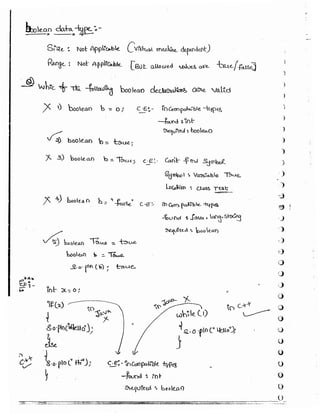 boolean data-type:-
Size : Not Applicable (virtual machine dependent)
Range : Not Applicable [But allowed values are true/false]
Q) which of the following boolean declarations are valid
X 1) boolean b = 0; C.E:- incompatible types
found : int
required : boolean
✓ 2) boolean b = true;
X 3) boolean b = True; C.E:- Can't find symbol
symbol : variable True
Location : class Test
X 4) boolean b = "false" C.E: incompatible types
found : java.lang.String
required : boolean
✓ 5) boolean True = true
boolean b = True
S.o.pln(b); true
Ex:-
int x = 0;
if(x) in Java X
{
S.o.pln("Hello");
}
else
{
S.o.pln("Hi");
}
C++
in Java X in C++
while(1)
{
S.o.pln("Hello");
}
C.E:- incompatible types
found : int
required : boolean